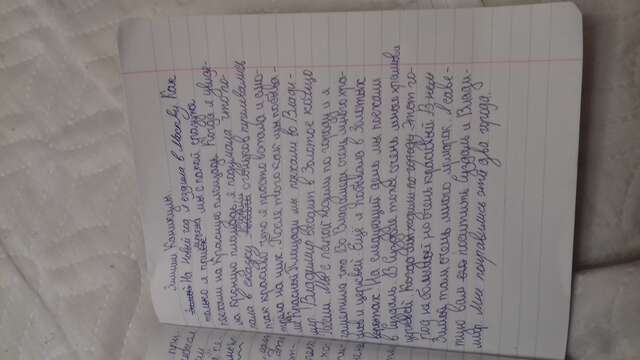 Зимнии Каникулы.
На новый год я ездила в Москву. Как
только я приехала мы с папой сразуже
поехали на Красную площадь. Когда я увиде-
ла Красную площадь, я подумала что по-
пала в сказку огоньков переливались
так красиво что я просто встала и смо-
трела на них. После того как мы побыва-
ли Красной Площади мы поехали во Влади-
мир. Владимир входит в Золотое кольцо
России. Мы с папой ходили по городу и я
заметила что Во Владимере очень много хра-
мов и церквей. Ещё я побывала в Золотых
воротах. На следующий день мы поехали
в Суздаль. В Суздале тоже очень много храмов и
церквей. Когда мы ходили по городу Этот го-
род не большой но очень красивый. В нём
Зимой там очень много ярмарок. Я сове-
тую вам поситить Суздаль и Влади-
мир. Мне понравились эти два города.